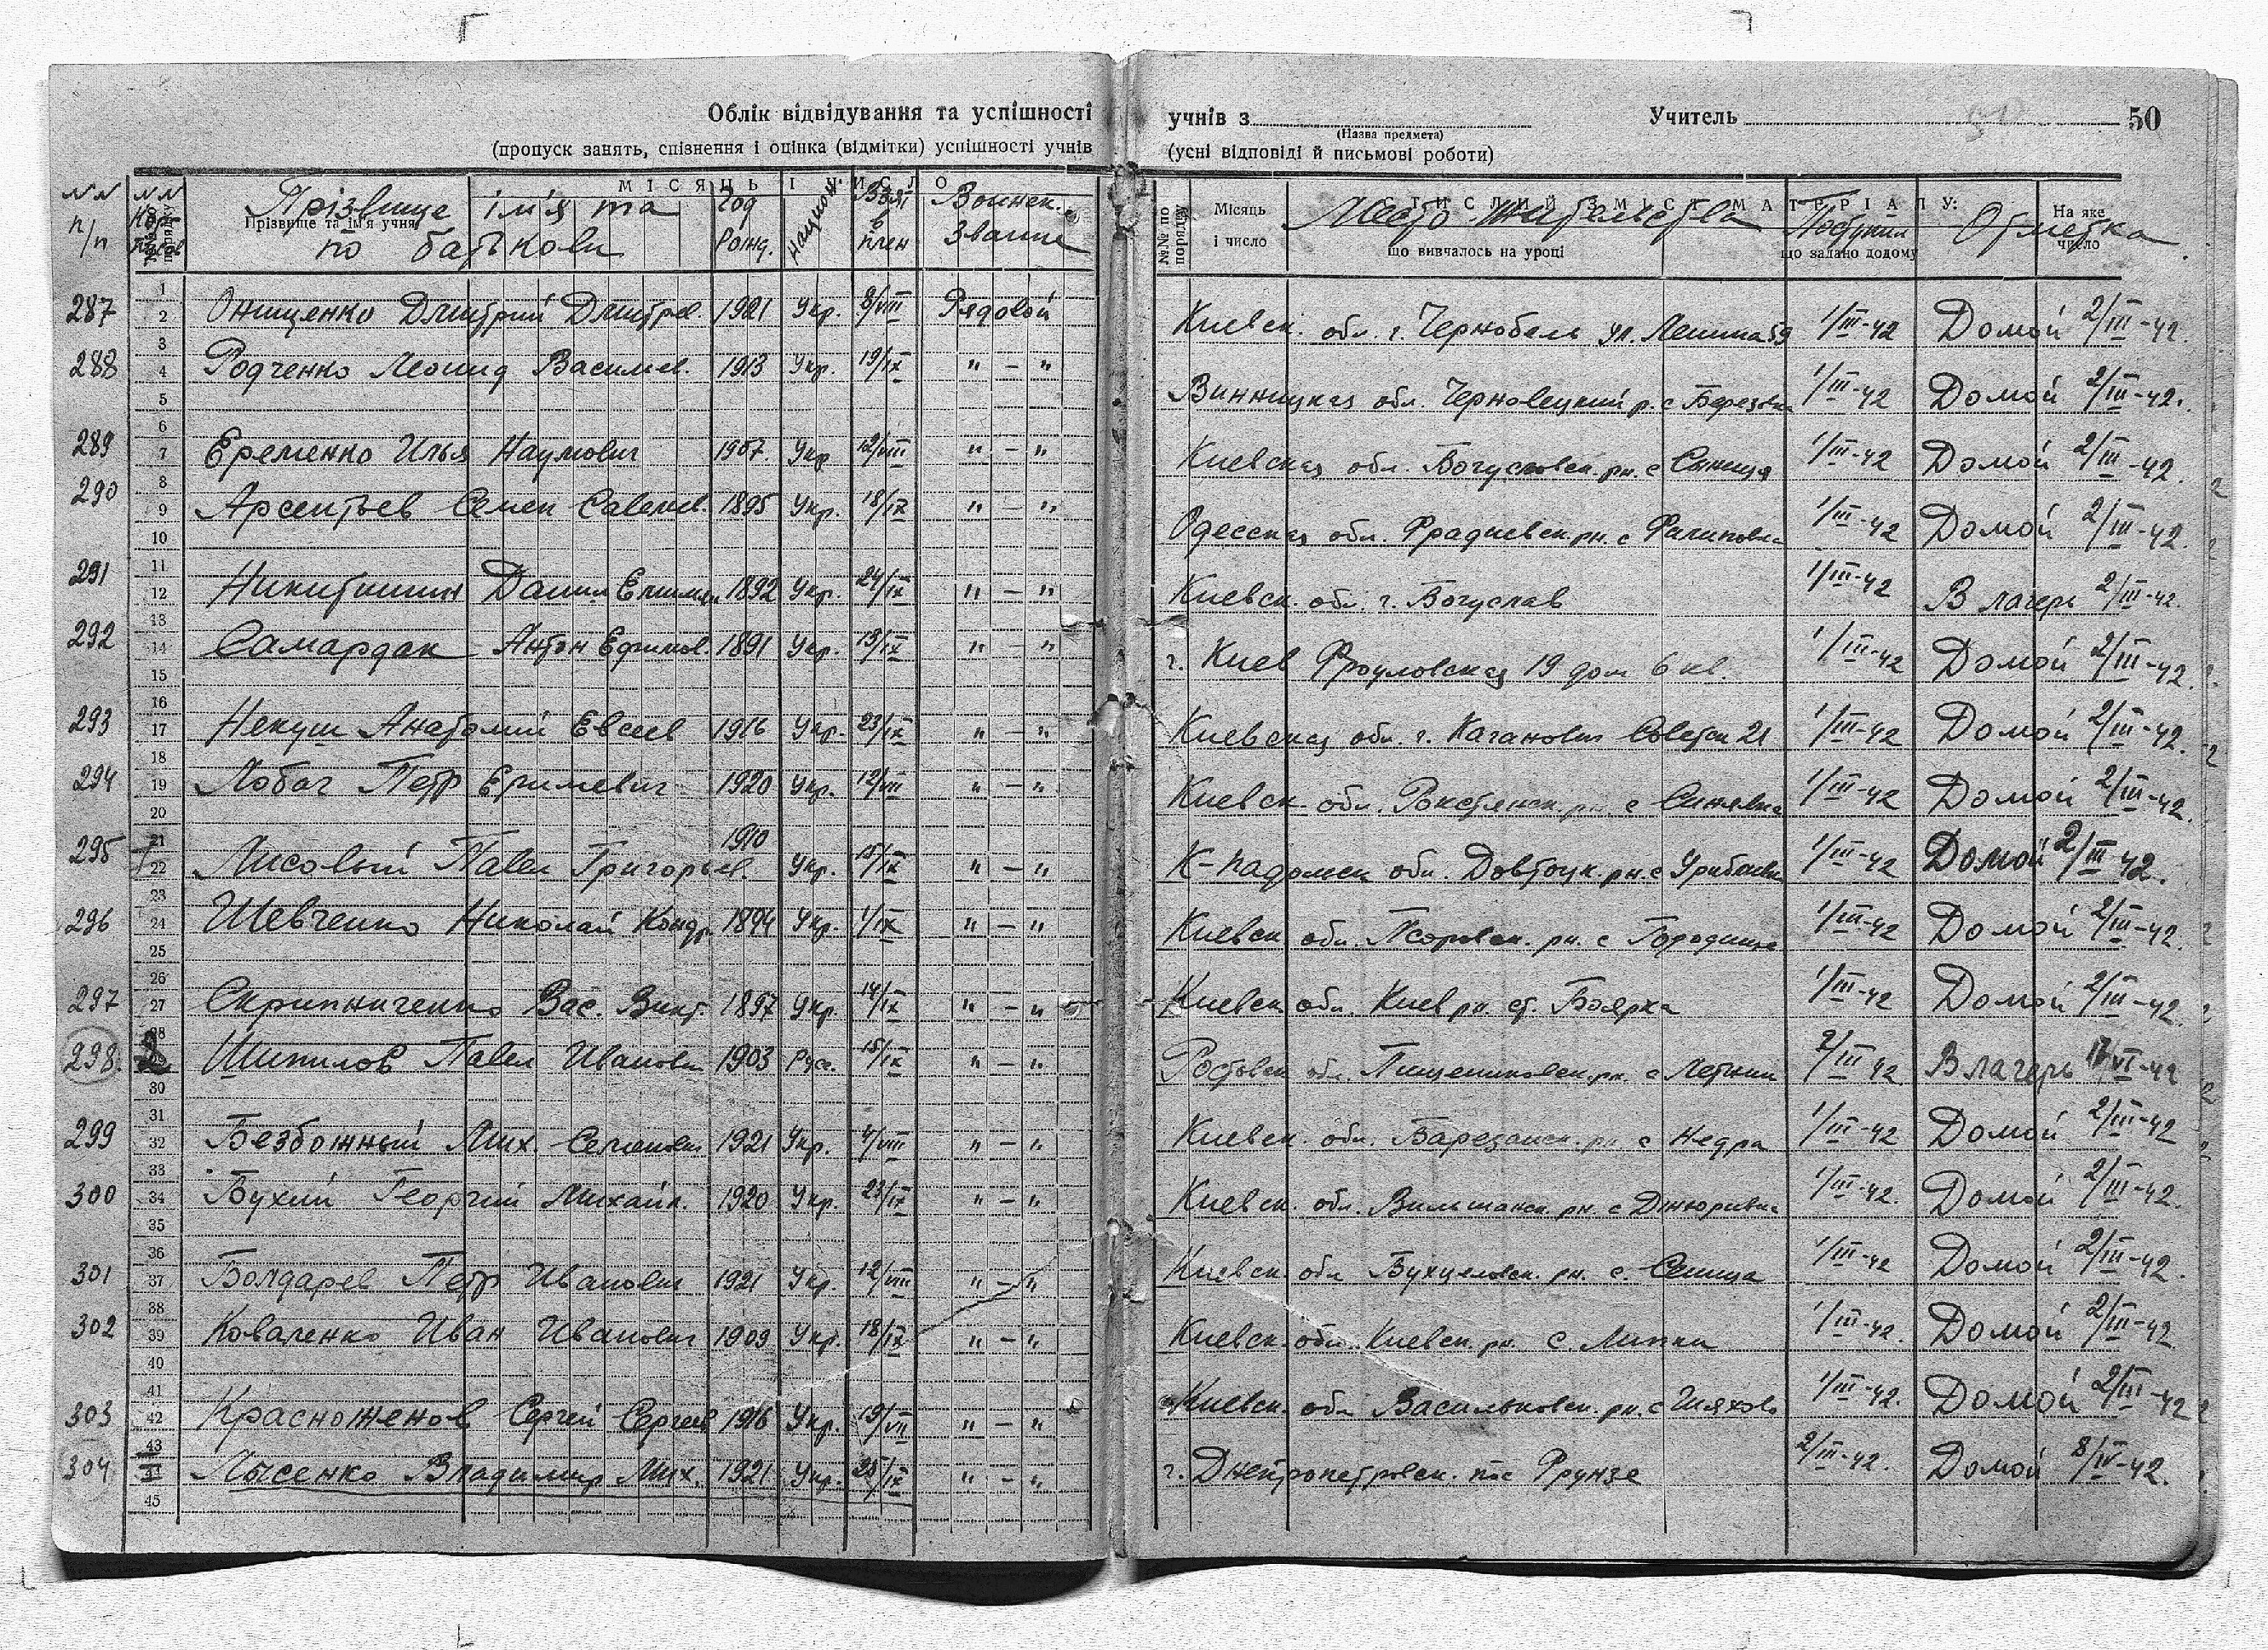 Облік відвідування та успішності учнів з Учитель 50
(Назва предмета)
(пропуск занять, спізнення і оцінка (відмітки) успішності учнів (усні відповіді й письмові роботи)
МІСЯЦЬ І ЧИСЛО
№№ п/п Прізвище ім'я та по батькові Год Рожд. Национ. Взят в плен Воинск. Звание Место жительства Поступил Отметка
Прізвище та ім'я учня №№ по порядку Місяць і число що вивчалось на уроці що задано додому На яке число
287 Онищенко Дмитрий Дмитрев. 1921 Укр. 8/VIII Рядовой Киевск. обл. г. Чернобель ул. Ленина 59 1/III-42 Домой 2/III-42.
288 Родченко Леонид Васильев. 1913 Укр. 19/IX "–" Винницкая обл. Черновецкий р. с Березовка 1/III-42 Домой 2/III-42.
289 Еременко Илья Наумович 1907. Укр 12/VIII "–" Киевская обл. Богусловск. рн. с Сыница 1/III-42 Домой 2/III-42.
290 Арсентьев Семен Савельев. 1895 Укр. 18/IX "–" Одесская обл. рн. с 1/III-42 Домой 2/III-42.
291 Никитишин Данил 1892 Укр. 24/IX "–" Киевск. обл. г. Богуслав 1/III-42 В лагерь 2/III-42.
292 Самардак Антон Ефимов. 1891 Укр. 19/IX "–" г. Киев 19 дом 6 кв. 1/III-42 Домой 2/III-42.
293 Некуш Анатолий Евсеев 1916 Укр. 23/IX "–" Киевская обл. г. Каганович Советск 21 1/III-42 Домой 2/III-42.
294 Лобач Петр 1920 Укр. 12/VIII "–" Киевск. обл. рн. с Синявка 1/III-42 Домой 2/III-42.
295 Лисовый Павел Григорьев. 1910 Укр. 15/IX "–" К-Подольск обл. рн. с 1/III-42 Домой 2/III 42.
296 Шевченко Николай Конд. 1894 Укр. 1/IX "–" Киевск обл. рн. с Городище 1/III-42 Домой 2/III-42.
297 Скрипниченко Вас. Викт. 1897 Укр. 14/IX "–" Киевск обл. Киев рн. ст. Боярка 1/III-42 Домой 2/III-42.
298. Шипилов Павел Иванович 1903 Рус. 15/IX "–" Ростовск обл. рн. с Летник 2/III 42 В лагерь 17/VI-42
299 Безбожный Мих. Семенович 1921 Укр. 4/VIII "–" Киевск. обл. Барезанск. рн. с Недра 1/III-42 Домой 2/III-42
300 Бухий Георгий Михайл. 1920 Укр. 21/IX "–" Киевск. обл. Вильшанск. рн. с 1/III-42. Домой 2/III-42.
301 Болдарев Петр Иванович 1921 Укр. 12/VIII "–" Киевск. обл рн. с. Сеница 1/III-42 Домой 2/III-42.
302 Коваленко Иван Иванович 1909 Укр. 18/IX "–" Киевск. обл. Киевск. рн. с. Липки 1/III-42. Домой 2/III-42
303 Красноженов Сергей Сергеев 1916 Укр. 19/VII "–" Киевск. обл Васильковск. рн. с 1/III-42. Домой 2/III-42
304 Лысенко Владимир Мих. 1921 Укр. 25/IX "–" г. Днепропетровск. пос Фрунзе 2/III-42. Домой 8/IV-42.